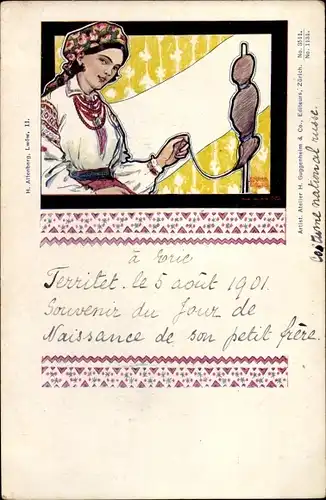 H. Altenberg, Lwów. 13.
Artist. Atelier H. Guggenheim & Co., Editeurs, Zürich. No. 3511.
No. 1133.
Costume national russe.
à Loric
Territet. le 5 août 1901.
Souvenir du Jour de
Naissance de son petit frère.